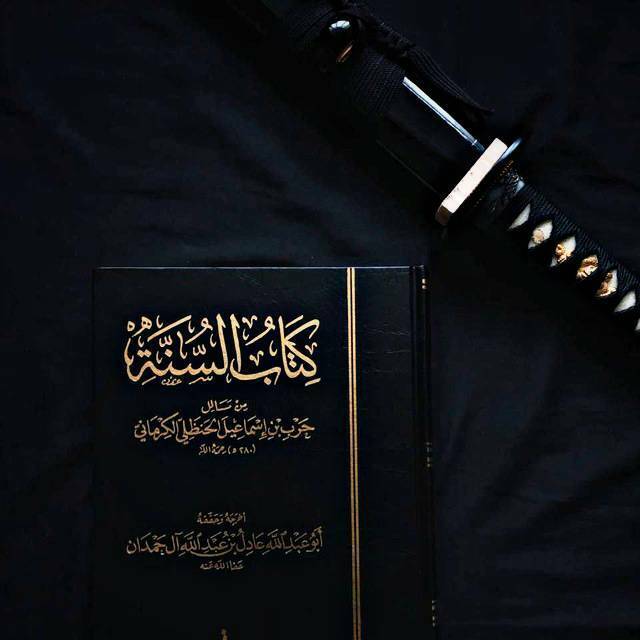 كِتَابُ السُّنَّةِ
مِن مَسَائِل
حَرْبِ بْنِ إِسْمَاعِيلَ الحَنْظَلِي الكِرْمَانِي
(٢٨٠هـ) رحمه الله
أَبُو عَبْدِ اللَّهِ عَادِلُ بْنُ عَبْدِ اللَّهِ آلُ حَمْدَان
عفا الله عنه